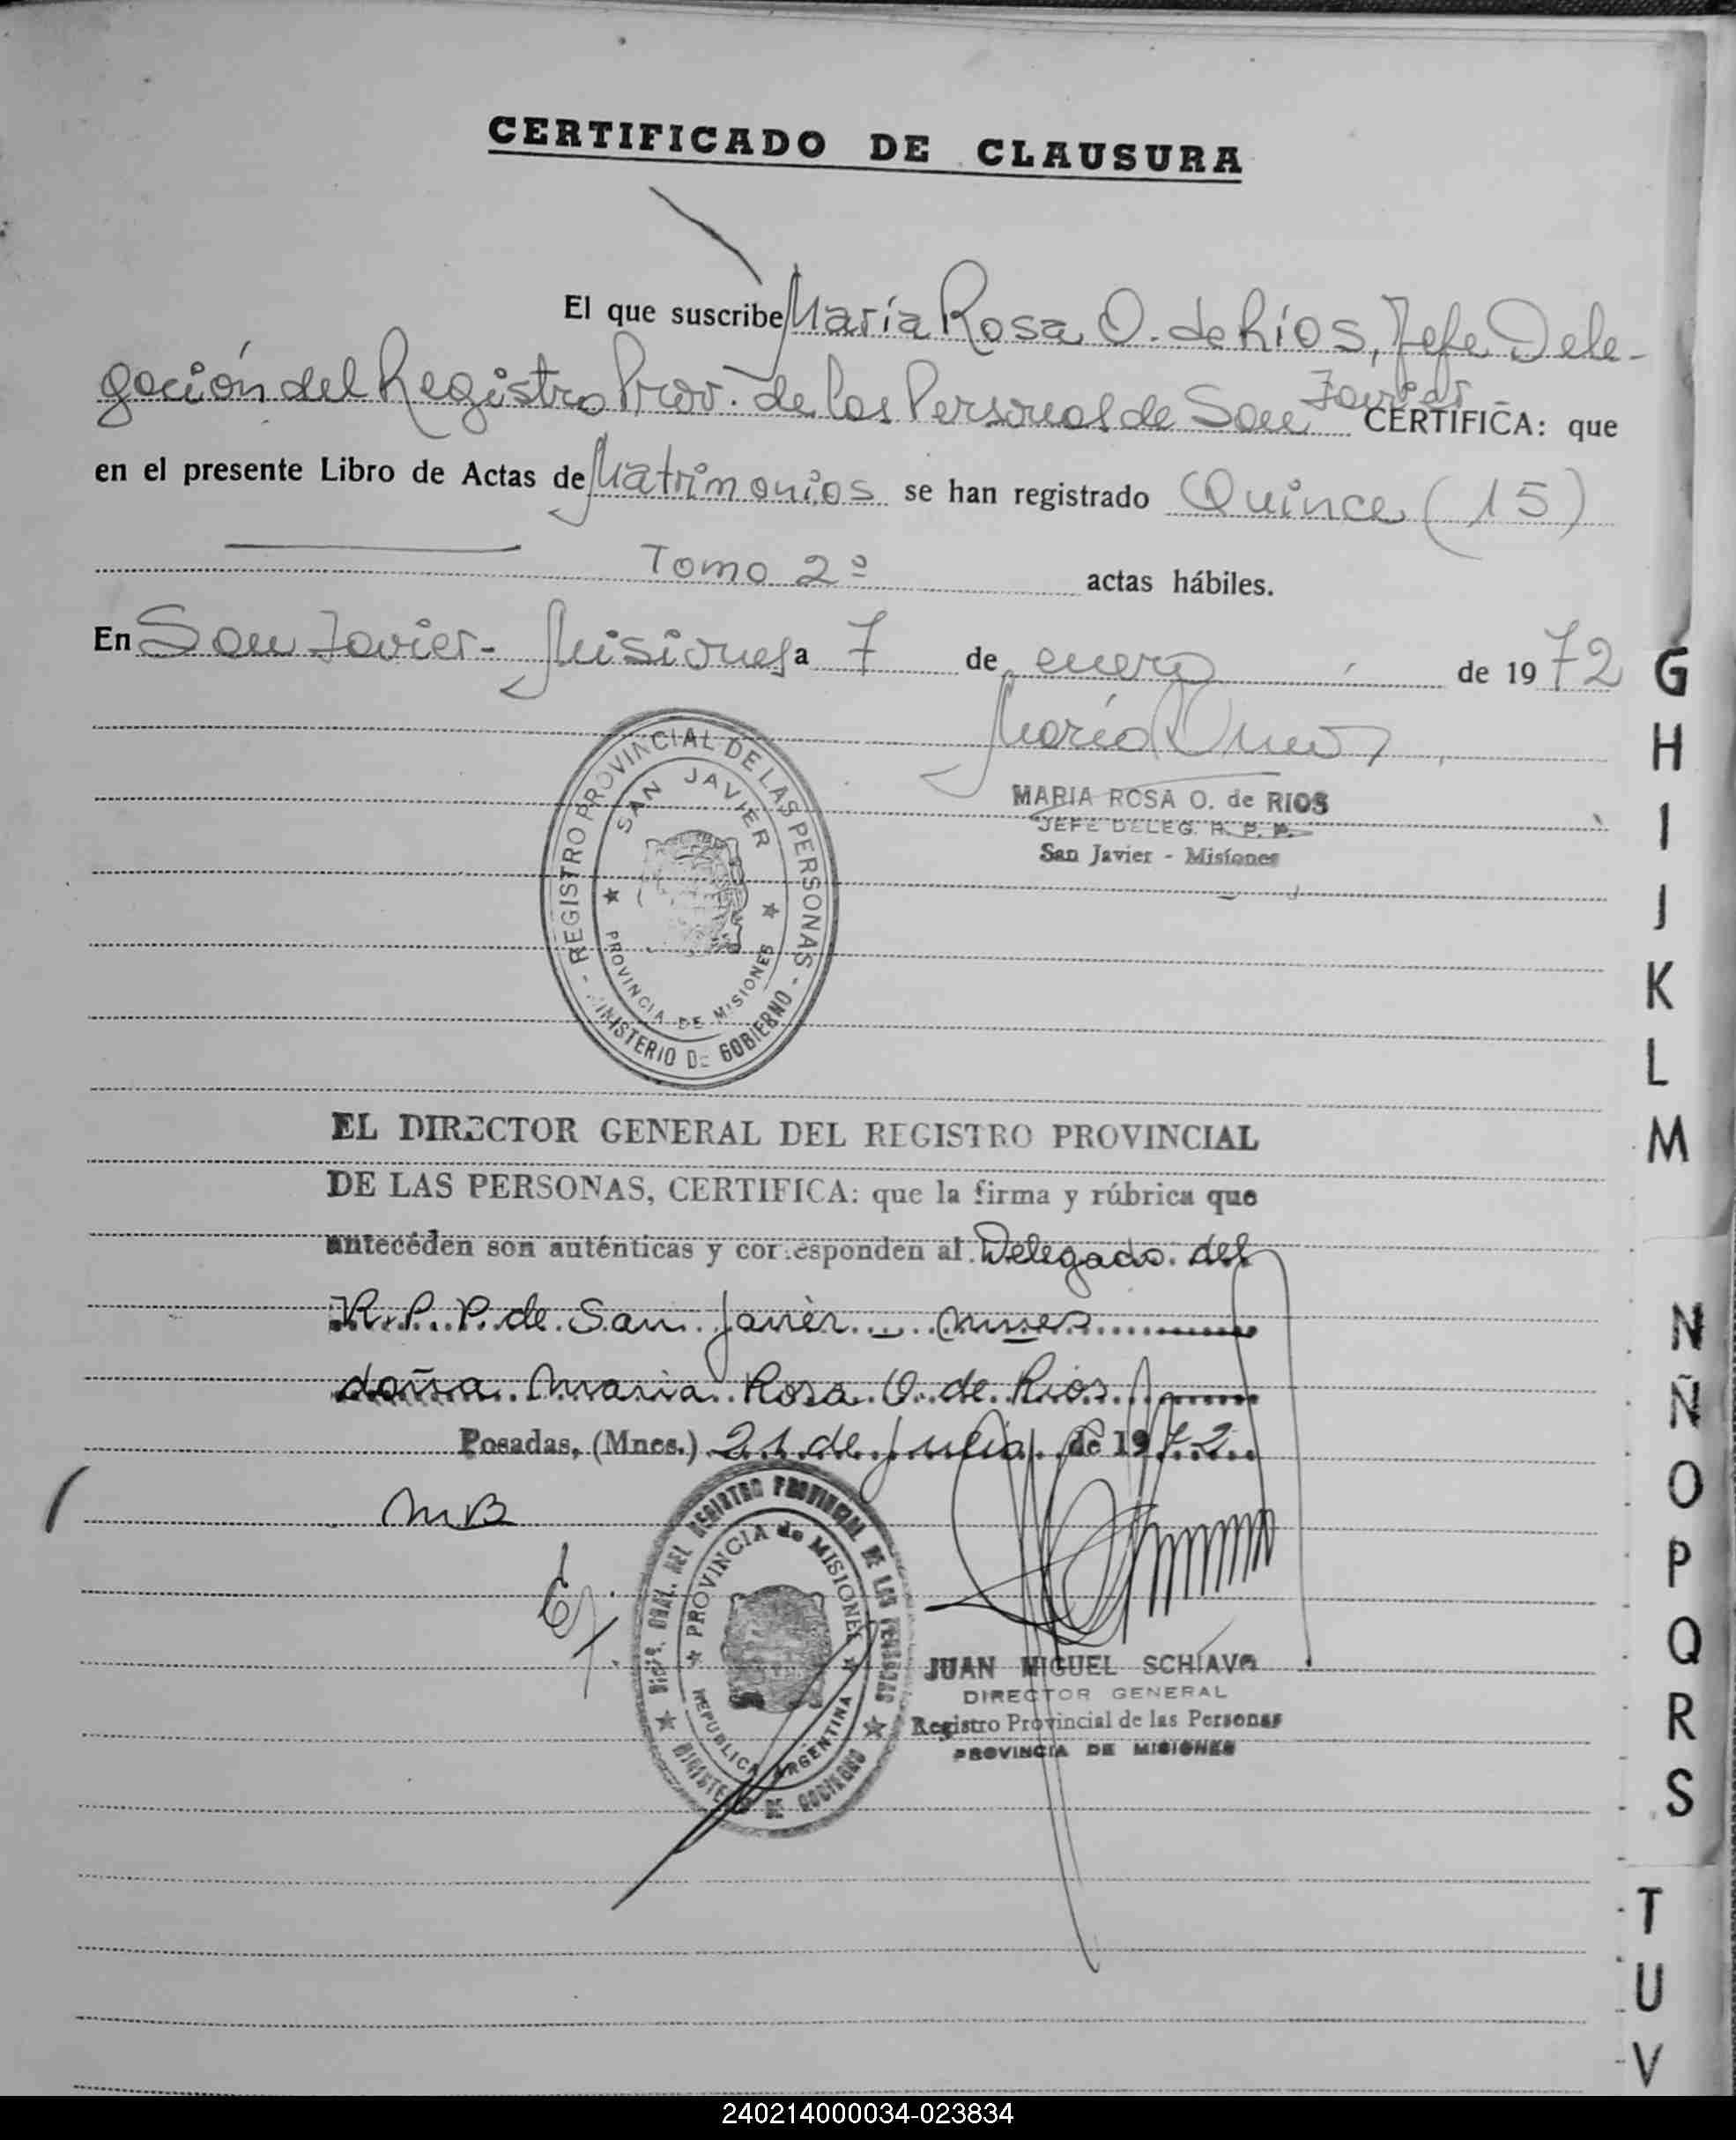 CERTIFICADO DE CLAUSURA
El que suscribe María Rosa O. de Ríos, Jefe Dele-
gación del Registro Prov. de las Personas de San Javier CERTIFICA: que
en el presente Libro de Actas de Matrimonios se han registrado Quince (15)
Tomo 2º actas hábiles.
En San Javier - Misiones a 7 de enero de 1972
MARIA ROSA O. de RIOS
JEFE DELEG. R. P. P.
San Javier - Misiones
REGISTRO PROVINCIAL DE LAS PERSONAS
SAN JAVIER
PROVINCIA DE MISIONES
MINISTERIO DE GOBIERNO
EL DIRECTOR GENERAL DEL REGISTRO PROVINCIAL
DE LAS PERSONAS, CERTIFICA: que la firma y rúbrica que
anteceden son auténticas y corresponden al Delegado del
R. P. P. de San Javier - Mnes
doña Maria Rosa O. de Rios
Posadas, (Mnes.) 21 de Julio de 1972
MB
DIREC. GRAL. DEL REGISTRO PROVINCIAL DE LAS PERSONAS
PROVINCIA de MISIONES
REPUBLICA ARGENTINA
MINISTERIO DE GOBIERNO
JUAN MIGUEL SCHIAVO
DIRECTOR GENERAL
Registro Provincial de las Personas
PROVINCIA DE MISIONES
G
H
I
J
K
L
M
N
Ñ
O
P
Q
R
S
T
U
V
240214000034-023834